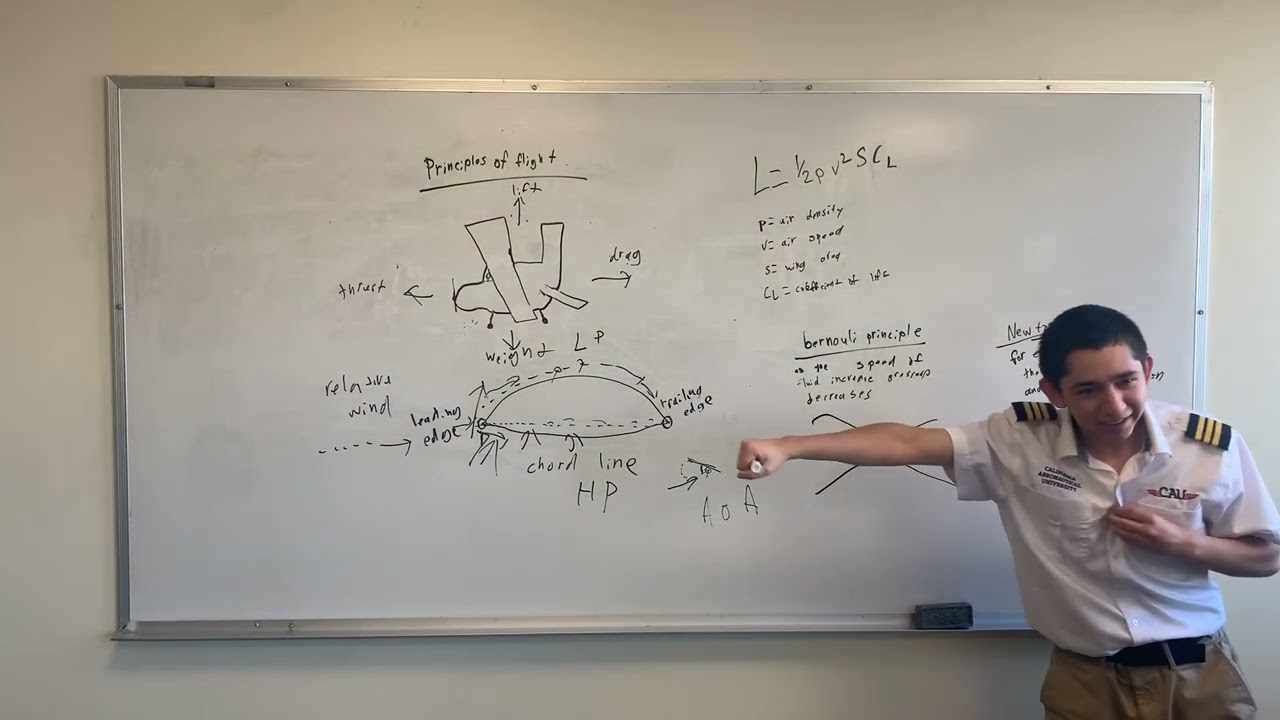 Principles of flight
lift
thrust
drag
weight
L P
relative
wind
leading
edge
trailing
edge
chord line
H P
A o A
L = 1/2 ρ v² S C L
P = air density
V = air speed
S = wing area
C L = coefficient of lift
bernouli principle
as the speed of
fluid increase
decreases
for
and
CALIFORNIA
AERONAUTICAL
UNIVERSITY
CAU